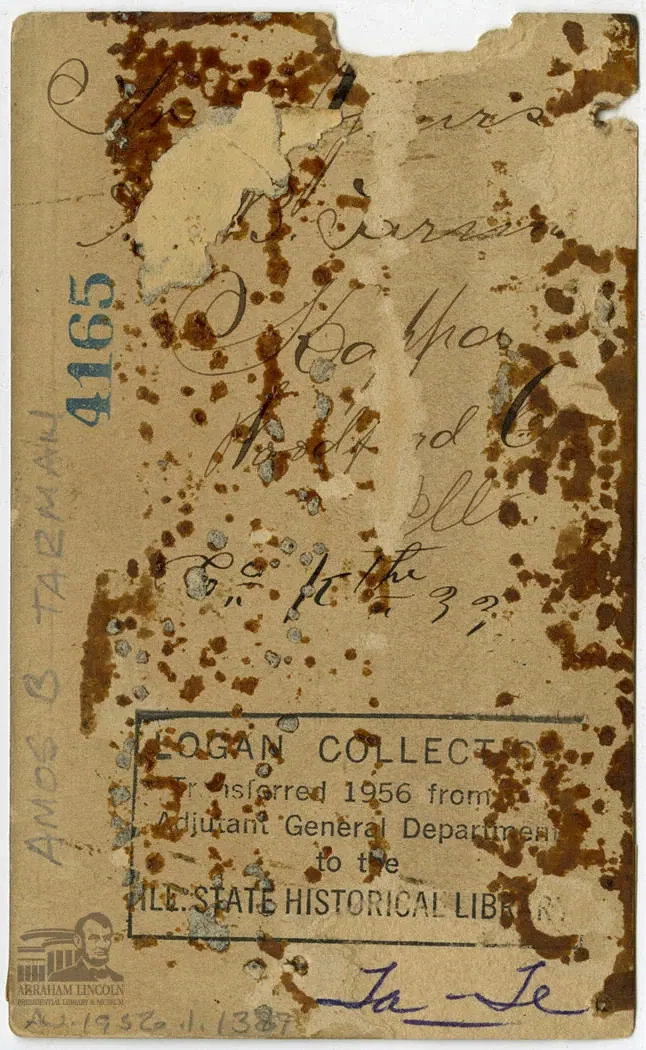 yours
B.
Kappa
Woodford Co
Ills
Co. K the 33
4165
AMOS B TARMAN
LOGAN COLLECTION
Transferred 1956 from
Adjutant General Department
to the
ILL. STATE HISTORICAL LIBRARY
Ta - Te
ABRAHAM LINCOLN
PRESIDENTIAL LIBRARY & MUSEUM
12